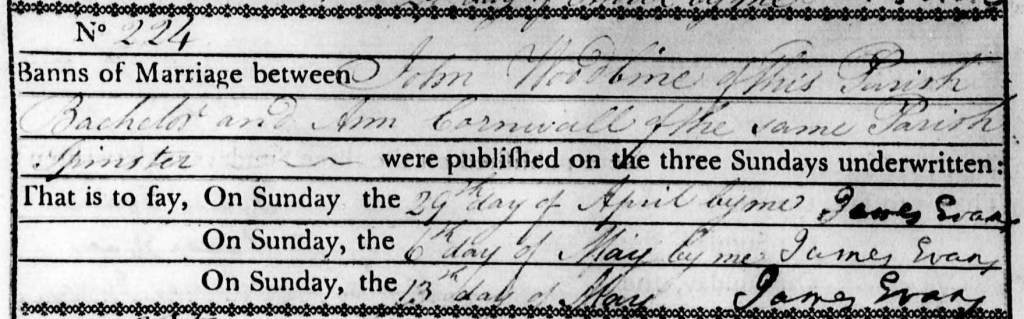 Nº 224
Banns of Marriage between John Woodbine of this Parish
Bachelor and Ann Cornwall of the same Parish
Spinster were publiſhed on the three Sundays underwritten:
That is to ſay, On Sunday the 29th day of April by me James Evans
On Sunday, the 6th day of May by me James Evans
On Sunday, the 13th day of May James Evans